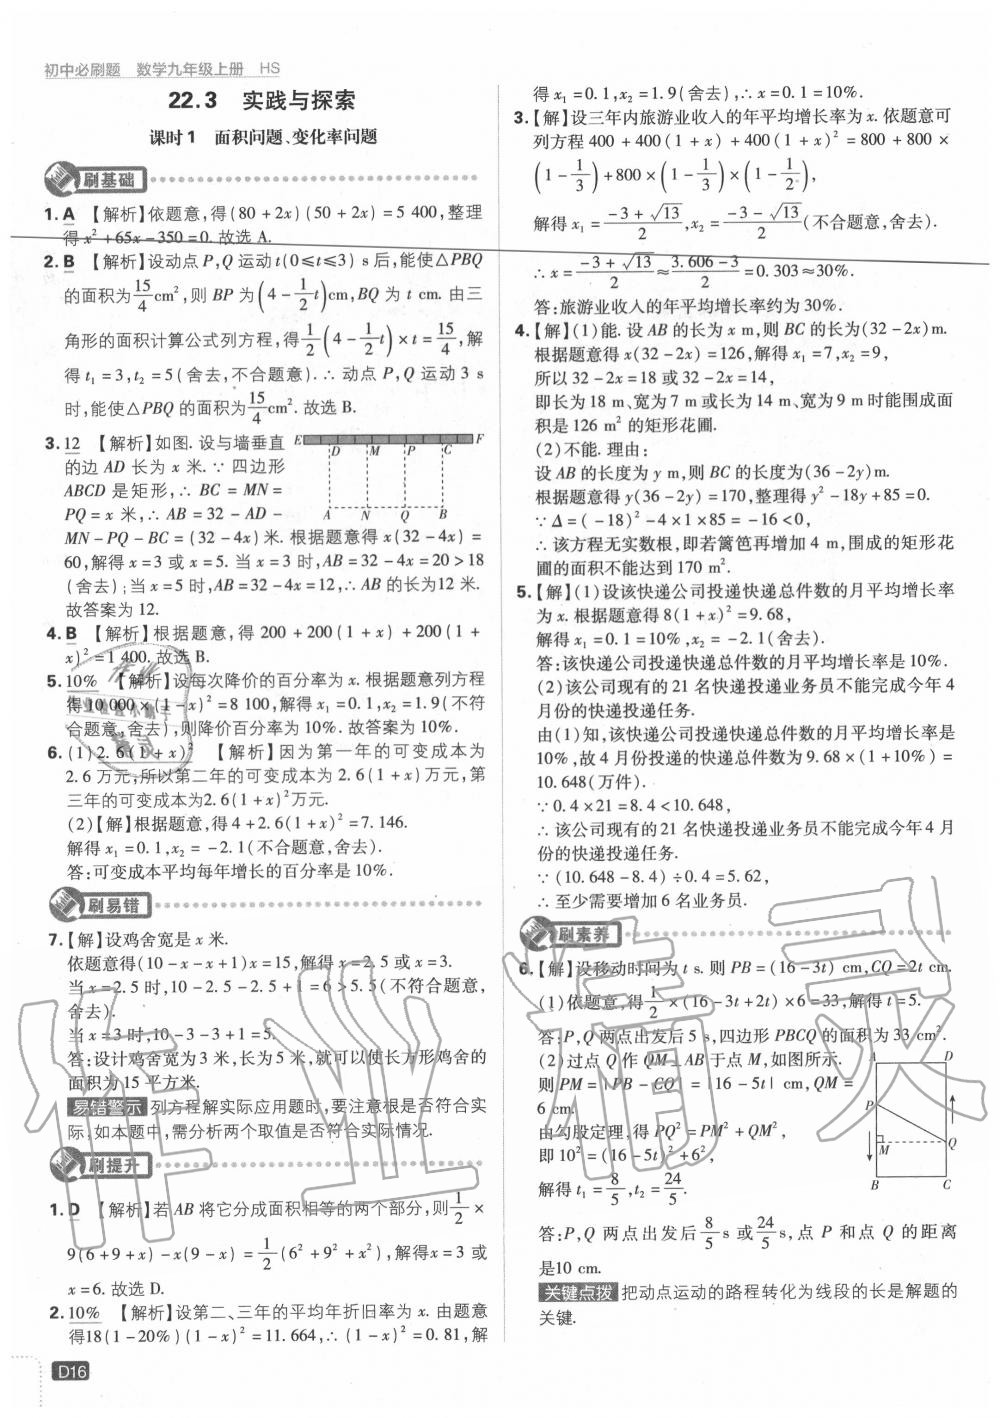 初中必刷题 数学九年级上册 HS
22.3 实践与探索
课时1 面积问题、变化率问题
刷基础
1. A 【解析】依题意,得(80+2x)(50+2x)=5 400,整理
得 x²+65x-350=0. 故选 A.
2. B 【解析】设动点 P,Q 运动 t(0≤t≤3) s后,能使△PBQ
的面积为15/4 cm²,则 BP 为(4-1/2 t)cm,BQ 为 t cm. 由三
角形的面积计算公式列方程,得1/2(4-1/2 t)×t=15/4,解
得 t₁=3,t₂=5(舍去,不合题意).∴动点 P,Q 运动 3 s
时,能使△PBQ 的面积为15/4 cm². 故选 B.
3. 12 【解析】如图. 设与墙垂直
的边 AD 长为 x 米.∵四边形
ABCD 是矩形,∴BC=MN=
PQ=x 米,∴AB=32-AD-
MN-PQ-BC=(32-4x)米. 根据题意得 x(32-4x)=
60,解得 x=3 或 x=5. 当 x=3 时,AB=32-4x=20>18
(舍去);当 x=5 时,AB=32-4x=12,∴AB 的长为12 米.
故答案为 12.
E F
D M P C
A N Q B
4. B 【解析】根据题意,得 200+200(1+x)+200(1+
x)²=1 400. 故选 B.
5. 10% 【解析】设每次降价的百分率为 x. 根据题意列方程
得 10 000×(1-x)²=8 100,解得 x₁=0.1,x₂=1.9(不符
合题意,舍去),则降价百分率为 10%. 故答案为 10%.
6. (1)2.6(1+x)² 【解析】因为第一年的可变成本为
2.6 万元,所以第二年的可变成本为 2.6(1+x)万元,第
三年的可变成本为2.6(1+x)²万元.
(2)【解】根据题意,得 4+2.6(1+x)²=7.146.
解得 x₁=0.1,x₂=-2.1(不合题意,舍去).
答:可变成本平均每年增长的百分率是 10%.
刷易错
7.【解】设鸡舍宽是 x 米.
依题意得(10-x-x+1)x=15,解得 x=2.5 或 x=3.
当 x=2.5 时,10-2.5-2.5+1=6>5.5(不符合题意,
舍去).
当 x=3 时,10-3-3+1=5.
答:设计鸡舍宽为 3 米,长为 5 米,就可以使长方形鸡舍的
面积为 15 平方米.
易错警示 列方程解实际应用题时,要注意根是否符合实
际,如本题中,需分析两个取值是否符合实际情况.
刷提升
1. D 【解析】若 AB 将它分成面积相等的两个部分,则1/2×
9(6+9+x)-x(9-x)=1/2(6²+9²+x²),解得 x=3 或
x=6. 故选 D.
2. 10% 【解析】设第二、三年的平均年折旧率为 x. 由题意
得18(1-20%)(1-x)²=11.664,∴(1-x)²=0.81,解
D16
得 x₁=0.1,x₂=1.9(舍去),∴x=0.1=10%.
3.【解】设三年内旅游业收入的年平均增长率为 x. 依题意可
列方程 400+400(1+x)+400(1+x)²=800+800×
(1-1/3)+800×(1-1/3)×(1-1/2),
解得 x₁=(-3+√13)/2,x₂=(-3-√13)/2(不合题意,舍去).
∴x=(-3+√13)/2≈(3.606-3)/2=0.303≈30%.
答:旅游业收入的年平均增长率约为 30%.
4.【解】(1)能. 设 AB 的长为 x m,则 BC 的长为(32-2x)m.
根据题意得 x(32-2x)=126,解得 x₁=7,x₂=9,
所以 32-2x=18 或 32-2x=14,
即长为 18 m、宽为 7 m 或长为 14 m、宽为 9 m 时能围成面
积是 126 m² 的矩形花圃.
(2)不能. 理由:
设 AB 的长度为 y m,则 BC 的长度为(36-2y)m.
根据题意得 y(36-2y)=170,整理得 y²-18y+85=0.
∵Δ=(-18)²-4×1×85=-16<0,
∴该方程无实数根,即若篱笆再增加 4 m,围成的矩形花
圃的面积不能达到 170 m².
5.【解】(1)设该快递公司投递快递总件数的月平均增长率
为 x. 根据题意得 8(1+x)²=9.68,
解得 x₁=0.1=10%,x₂=-2.1(舍去).
答:该快递公司投递快递总件数的月平均增长率是 10%.
(2)该公司现有的 21 名快递投递业务员不能完成今年 4
月份的快递投递任务.
由(1)知,该快递公司投递快递总件数的月平均增长率是
10%,故 4 月份投递的快递总件数为 9.68×(1+10%)=
10.648(万件).
∵0.4×21=8.4<10.648,
∴该公司现有的 21 名快递投递业务员不能完成今年 4 月
份的快递投递任务.
∵(10.648-8.4)÷0.4=5.62,
∴至少需要增加 6 名业务员.
刷素养
6.【解】设移动时间为 t s. 则 PB=(16-3t) cm,CQ=2t cm.
(1)依题意,得1/2×(16-3t+2t)×6=33,解得 t=5.
答:P,Q 两点出发后 5 s,四边形 PBCQ 的面积为 33 cm².
(2)过点 Q 作 QM⊥AB 于点 M,如图所示.
则 PM=|PB-CQ|=|16-5t| cm,QM=
6 cm.
由勾股定理,得 PQ²=PM²+QM²,
即 10²=(16-5t)²+6²,
解得 t₁=8/5,t₂=24/5.
A D
P
M Q
B C
答:P,Q 两点出发后8/5 s 或24/5 s,点 P 和点 Q 的距离
是10 cm.
关键点拨 把动点运动的路程转化为线段的长是解题的
关键.
作业精灵